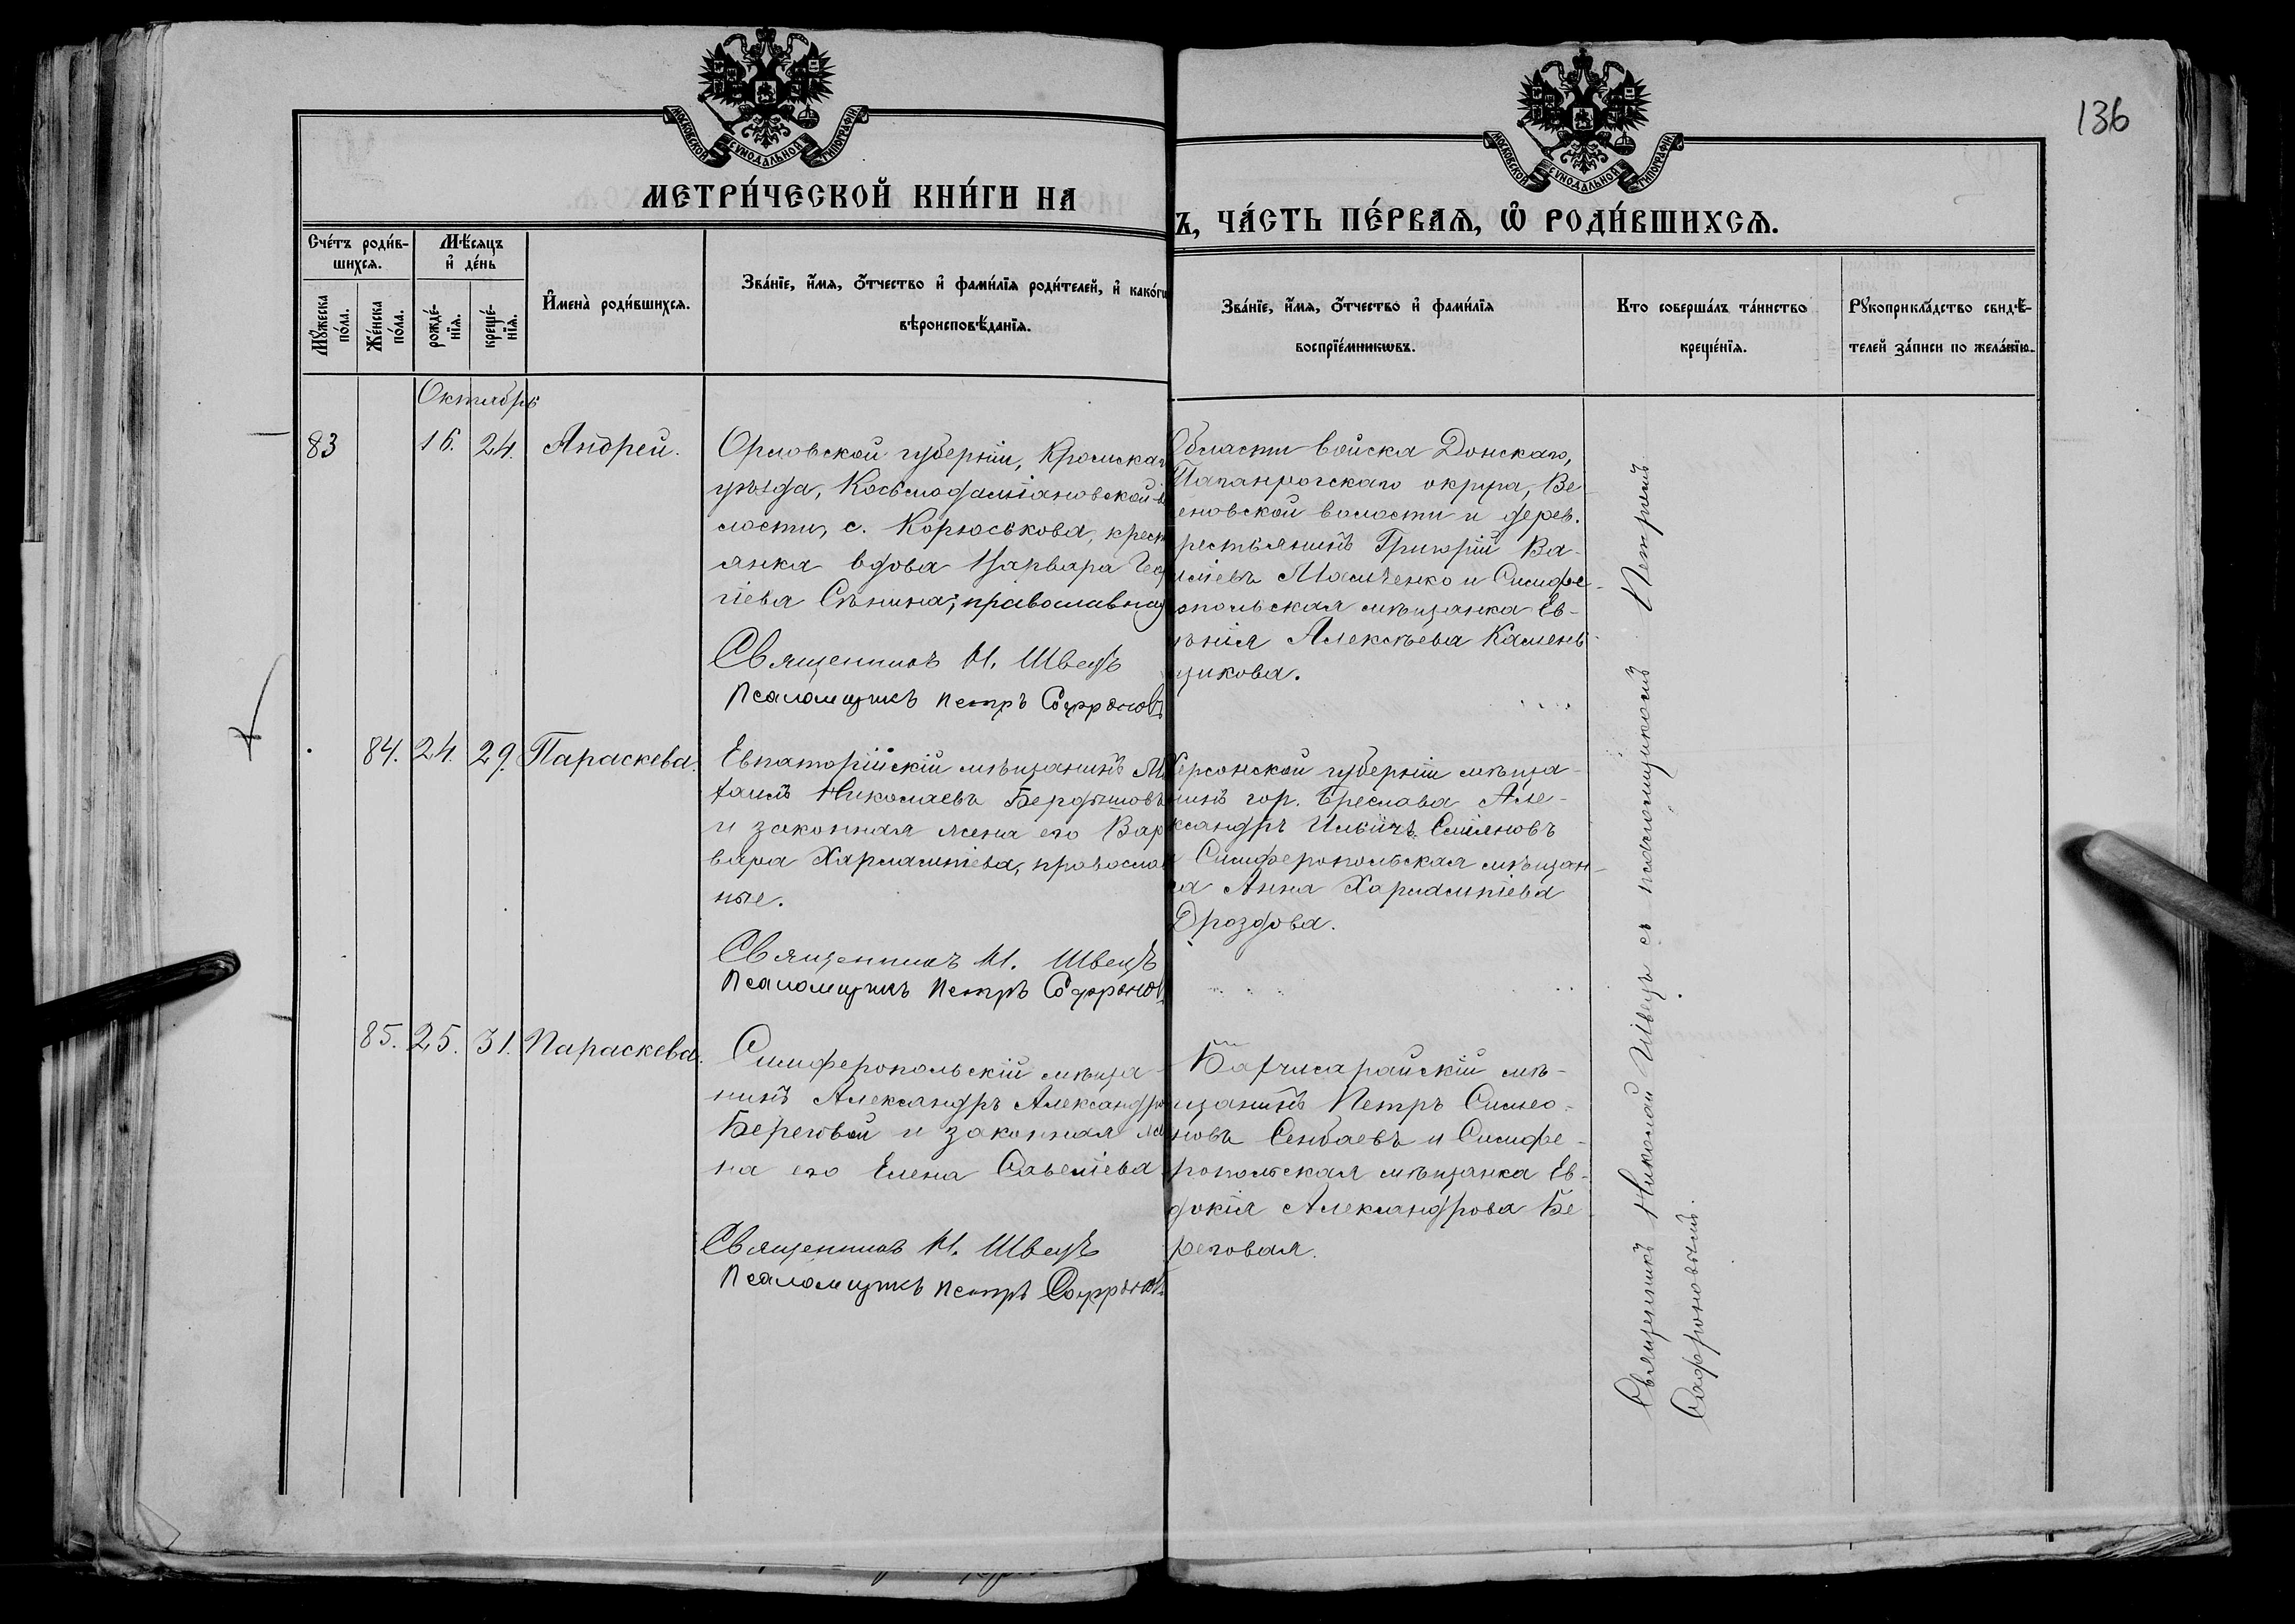 136
МОСКОВСКОЙ СУНОДАЛЬНОЙ ТИПОГРАФІИ
МОСКОВСКОЙ СУНОДАЛЬНОЙ ТИПОГРАФІИ
МЕТРИ́ЧЕСКОЙ КНИ́ГИ НА
Ъ, ЧА́СТЬ ПЕ́РВАѦ, Ѽ РОДИ́ВШИХСѦ.
Сче́тъ роди́в-
шихсѧ.
Мѣ́сяцъ
и҆ де́нь
Мꙋ́жеска
по́ла.
Же́нска
по́ла.
рожде́-
нїѧ.
креще́-
нїѧ.
И҆мена̀ роди́вшихсѧ.
Зва́нїе, и҆́мѧ, ѻ҆́тчество и҆ фами́лїѧ роди́телей, и҆ како́гѡ
вѣроисповѣ́данїѧ.
Зва́нїе, и҆́мѧ, ѻ҆́тчество и҆ фами́лїѧ
воспрїе́мникѡвъ.
Кто соверша́лъ та́инство
креще́нїѧ.
Рꙋкоприкла́дство свидѣ́-
телей за́писи по жела́нїю.
Октябрь
83
16.
24.
Андрей.
Орловской губерніи, Кромскаго
уѣзда, Косьмодаміановской во
лости, с. Корюськова, крест
янка вдова Варвара Геор
гіева Сѣнина; православная
Священникъ Н. Швецъ
Псаломщикъ Петръ Софроновъ
Области войска Донскаго,
Таганрогскаго округа, Ве
еновской волости и дерев.
рестьянинъ Григорій Ва-
иліевъ Масиченко и Симфе-
опольская мѣщанка Ев-
енія Алексѣева Камень-
щикова.
84.
24.
29.
Параскева.
Евпаторійскій мѣщанинъ Ми
хаилъ Николаевъ Бердышовъ
и законная жена его Вар
вара Харлампіева, православ
ные.
Священникъ Н. Швецъ
Псаломщикъ Петръ Софронов
Херсонской губерніи мѣща-
нинъ гор. Береслава Але-
ксандръ Ильичъ Смѣяновъ
и Симферопольская мѣщан-
ка Анна Харлампіева
Дроздова.
85.
25.
31.
Параскева.
Симферопольскій мѣща-
нинъ Александръ Александро
Береговой и законная же
на его Елена Савеліева
Священникъ Н. Швецъ
Псаломщикъ Петръ Софронов
Бахчисарайскій мѣ-
щанинъ Петръ Симео-
новъ Сенбаевъ и Симфе-
ропольская мѣщанка Ев-
докія Александрова Бе
реговая.
Священникъ Николай Швецъ съ псаломщикомъ Петромъ
Софроновымъ.